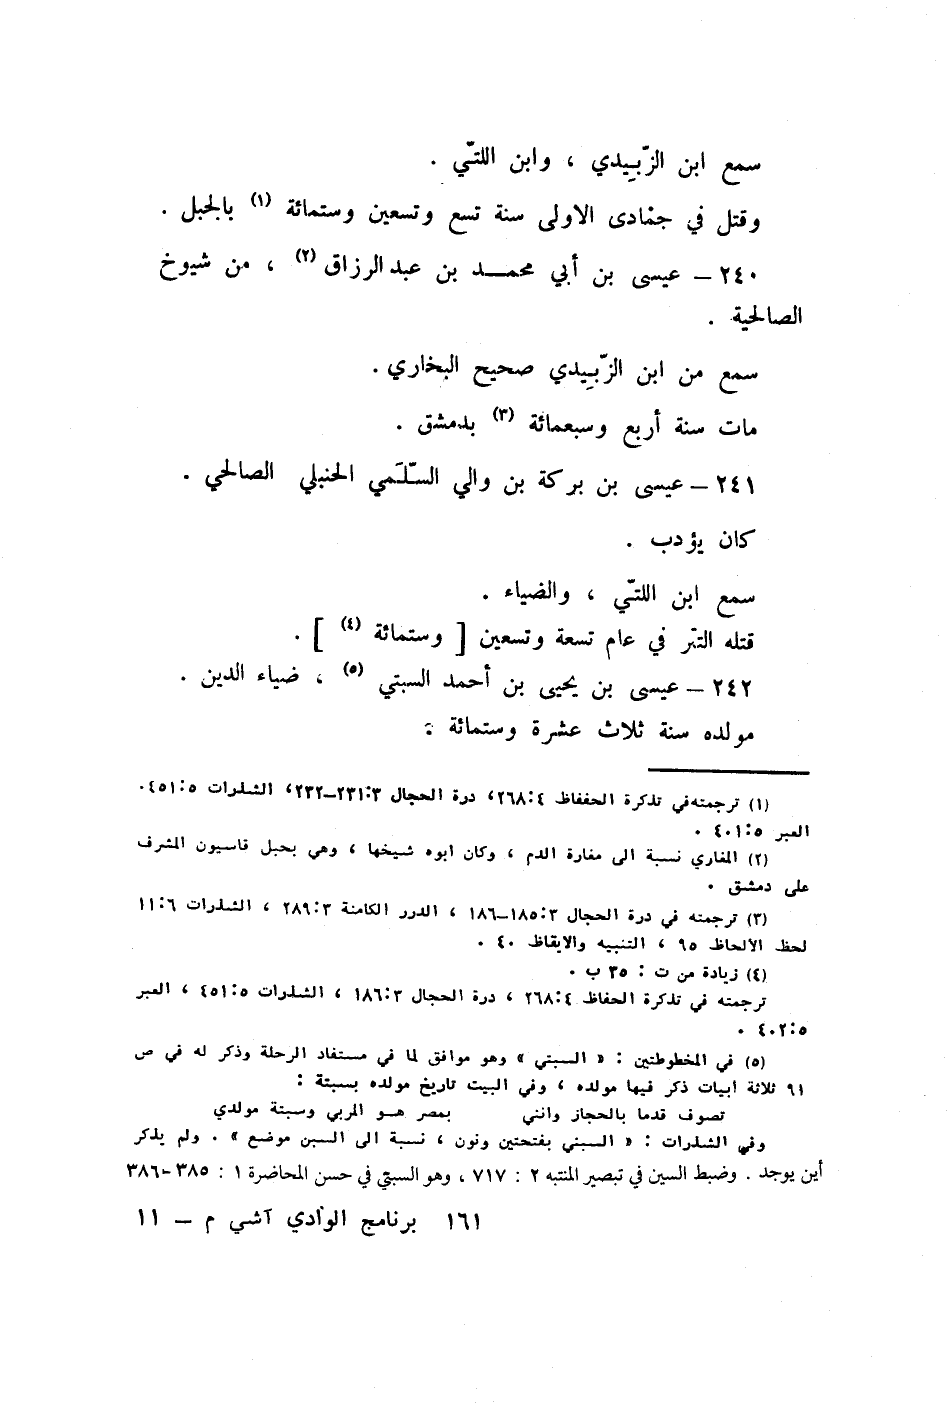 سمع ابن الزّبِيدي ، وابن اللتّي .
وقتل في جمادى الاولى سنة تسع وتسعين وستمائة (١) بالجبل .
٢٤٠ – عيسى بن أبي محمد بن عبد الرزاق (٢) ، من شيوخ
الصالحية .
سمع من ابن الزّبِيدي صحيح البخاري .
مات سنة أربع وسبعمائة (٣) بدمشق .
٢٤١ – عيسى بن بركة بن والي السّلَمي الحنبلي الصالحي .
كان يؤدب .
سمع ابن اللتّي ، والضياء .
قتله التتر في عام تسعة وتسعين [ وستمائة (٤) ] .
٢٤٢ – عيسى بن يحيى بن أحمد السبتي (٥) ، ضياء الدين .
مولده سنة ثلاث عشرة وستمائة :
(١) ترجمته في تذكرة الحفاظ ٢٦٨:٤، درة الحجال ٢٣١:٣–٢٣٢، الشذرات ٤٥١:٥.
العبر ٤٠١:٥ .
(٢) المغاري نسبة الى مغارة الدم ، وكان ابوه شيخها ، وهي بجبل قاسيون المشرف
على دمشق .
(٣) ترجمته في درة الحجال ١٨٥:٣–١٨٦ ، الدرر الكامنة ٢٨٩:٣ ، الشذرات ١١:٦
لحظ الألحاظ ٩٥ ، التنبيه والايقاظ ٤٠ .
(٤) زيادة من ت : ٣٥ ب .
ترجمته في تذكرة الحفاظ ٢٦٨:٤ ، درة الحجال ١٨٦:٣ ، الشذرات ٤٥١:٥ ، العبر
٤٠٢:٥ .
(٥) في المخطوطتين : « السبتي » وهو موافق لما في مستفاد الرحلة وذكر له في ص
٦١ ثلاثة ابيات ذكر فيها مولده ، وفي البيت تاريخ مولده بسبتة :
تصوف قدما بالحجاز وانني بمصر هو المربي وسبتة مولدي
وفي الشذرات : « السبني بفتحتين ونون ، نسبة الى السبن موضع » . ولم يذكر
أين يوجد . وضبط السين في تبصير المنتبه ٢ : ٧١٧ ، وهو السبتي في حسن المحاضرة ١ : ٣٨٥-٣٨٦
١٦١ برنامج الوادي آشي م – ١١